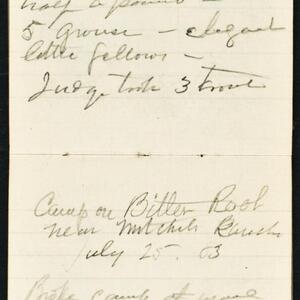 half a pound -
5 Grouse - elegant
little fellows -
Judge took 3 trout
Camp on Bitter Root
near Mitchels Ranch
July 25. 03
Broke camp at